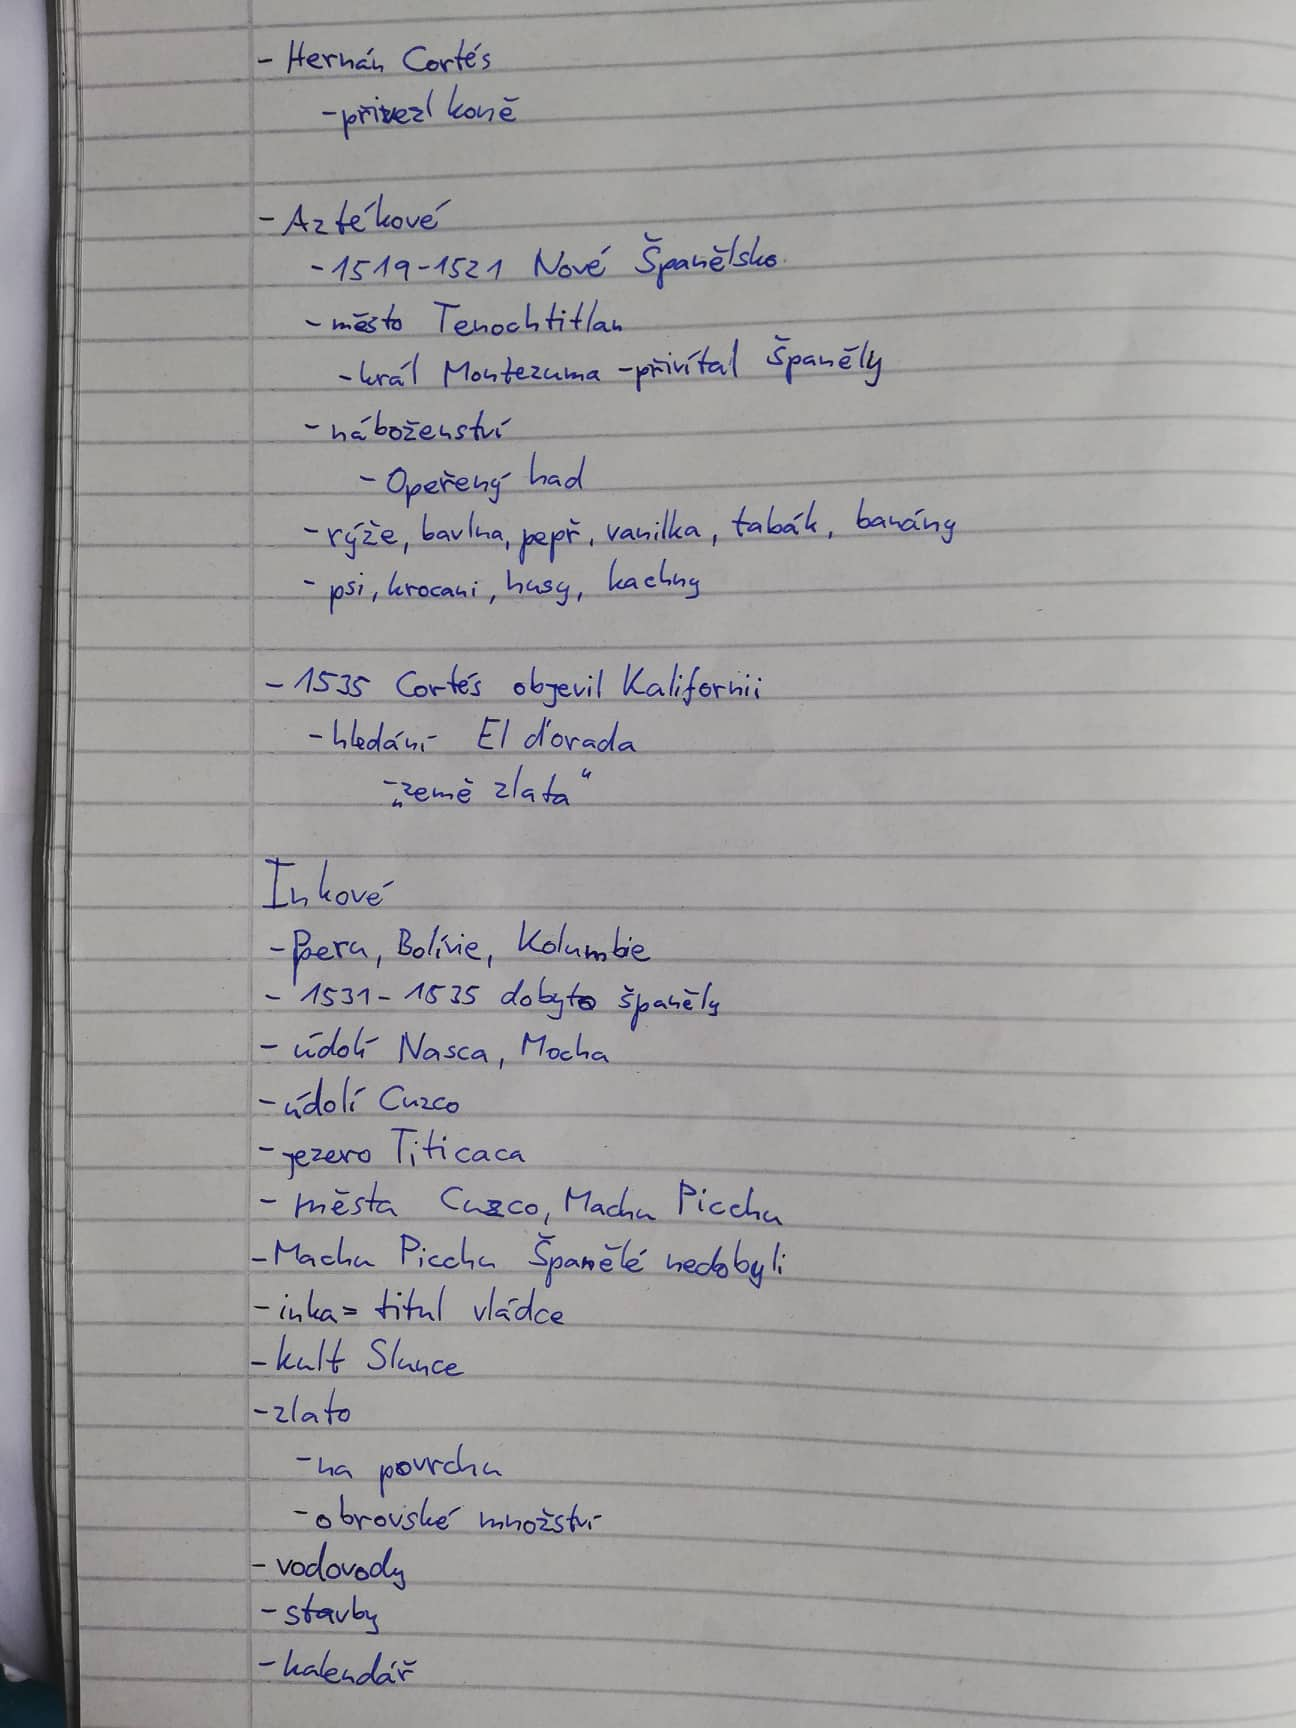 - Hernán Cortés
- přivezl koně
- Aztékové
- 1519-1521 Nové Španělsko
- město Tenochtitlan
- král Montezuma - přivítal Španěly
- náboženství
- Opeřený had
- rýže, bavlna, pepř, vanilka, tabák, banány
- psi, krocani, husy, kachny
- 1535 Cortés objevil Kalifornii
- hledání El d'orada
- „země zlata“
Inkové
- Peru, Bolívie, Kolumbie
- 1531-1535 dobyto španěly
- údolí Nasca, Mocha
- údolí Cuzco
- jezero Titicaca
- města Cuzco, Machu Picchu
- Machu Picchu Španělé nedobyli
- inka = titul vládce
- kult Slunce
- zlato
- na povrchu
- obrovské množství
- vodovody
- stavby
- kalendář